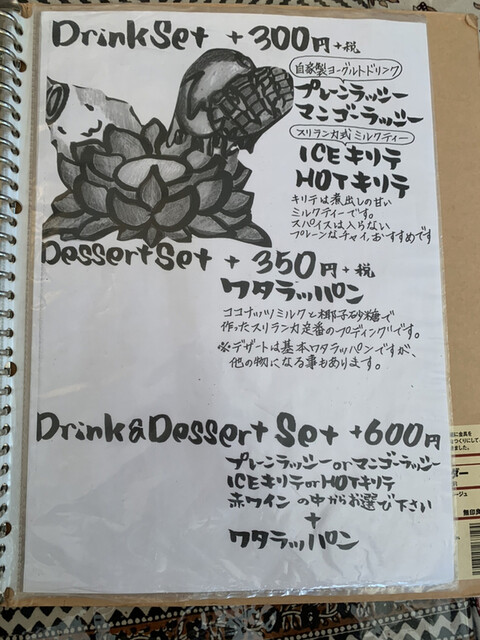 DrinkSet + 300円+税
自家製ヨーグルトドリンク
プレーンラッシー
マンゴーラッシー
スリランカ式ミルクティー
ICEキリテ
HOTキリテ
キリテは煮出しの甘い
ミルクティーです。
スパイスは入らない
プレーンなチャイ、おすすめです
DessertSet + 350円+税
ワタラッパン
ココナッツミルクと椰子砂糖で
作ったスリランカ定番のプディングです。
※デザートは基本ワタラッパンですが、
他の物になる事もあります。
Drink&Dessert Set +600円
プレーンラッシーorマンゴーラッシー
ICEキリテorHOTキリテ
赤ワインの中からお選び下さい
+
ワタラッパン